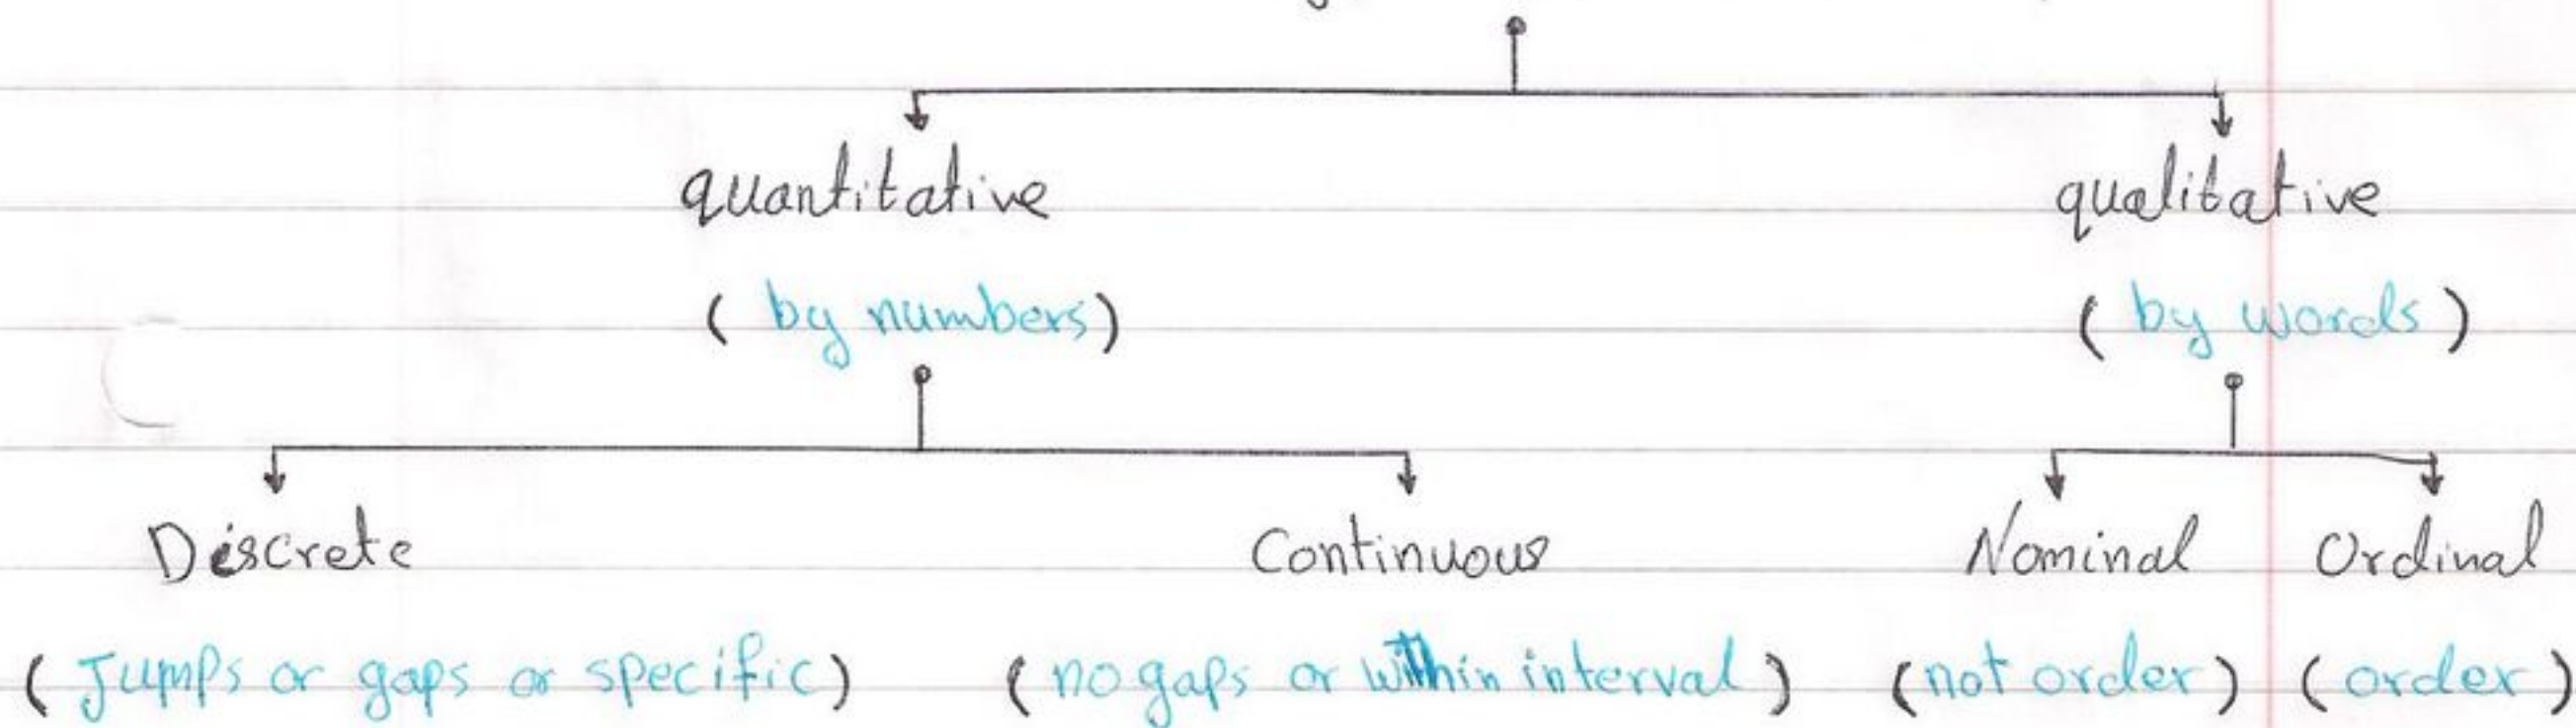 quantitative qualitative
( by numbers) ( by words )
Discrete Continuous Nominal Ordinal
( Jumps or gaps or specific) ( no gaps or within interval ) (not order) ( order )